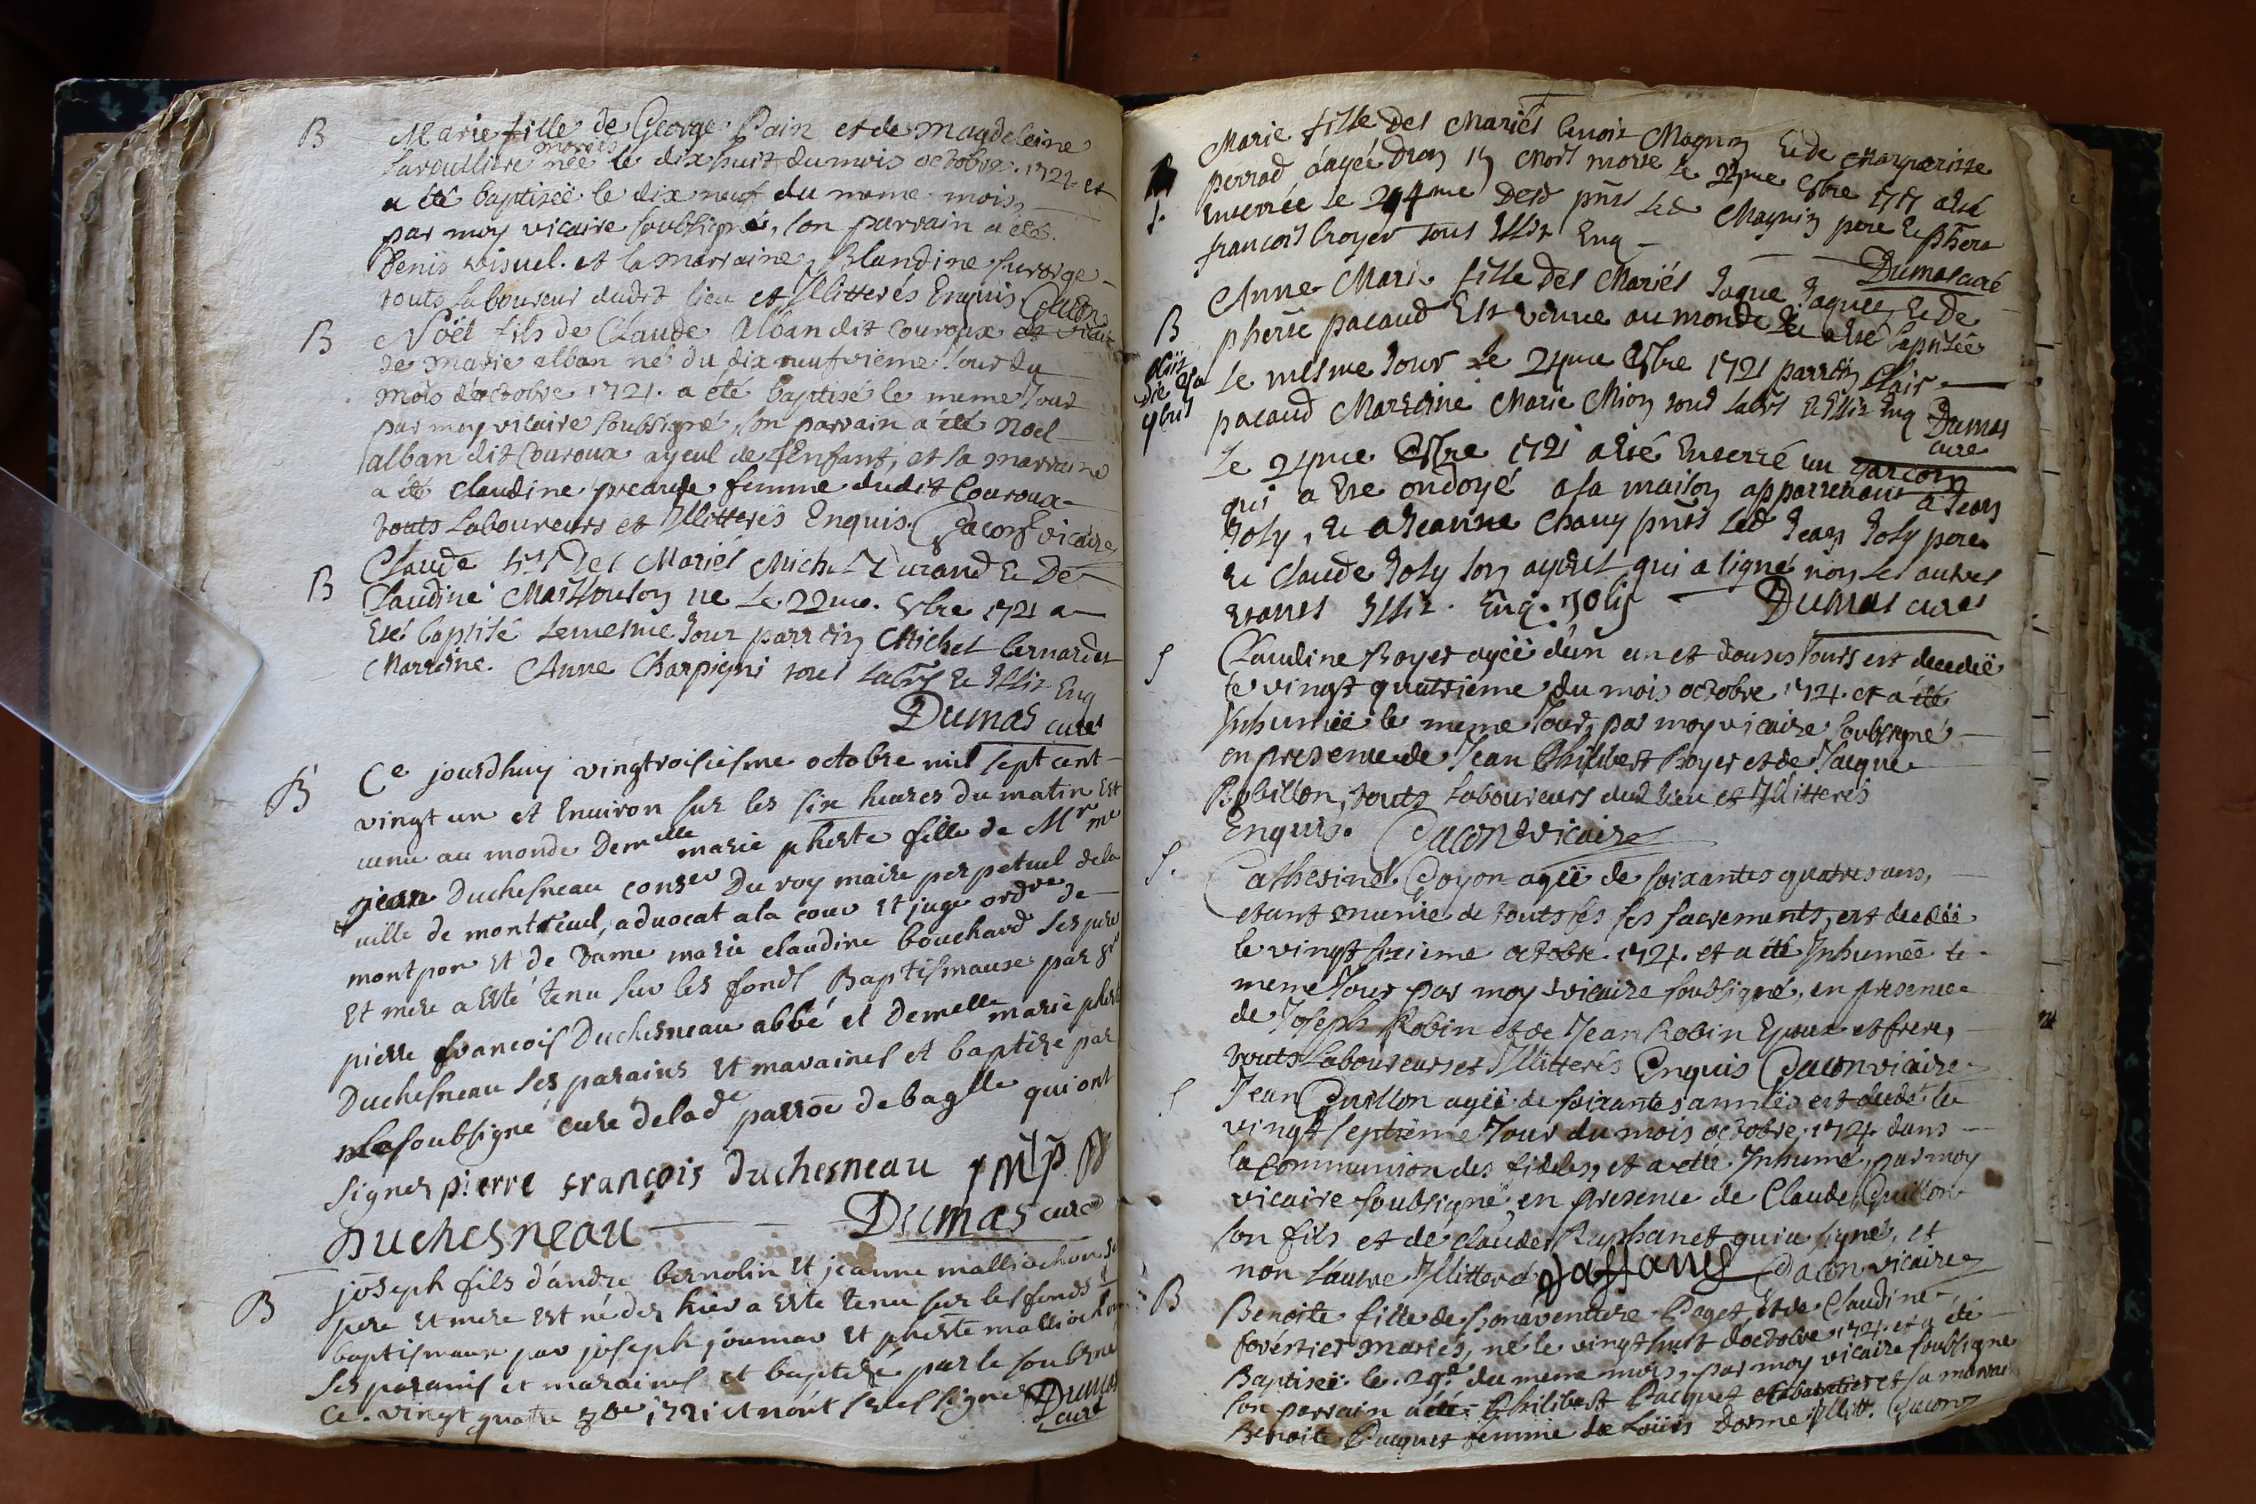 B Marie fille de George Pain et de magdeleine
mariés
née le dix huit du mois octobre 1721 et
a été baptiseë le dix neuf du meme mois,
par moy vicaire soubsigné, son parrain a été
Denis et la marraine Blandine
touts laboureur dudit lieu et Illitteres Enquis Gacon
B Noël fils de Claude alban dit Couroux et
de marie alban né du dix neufvieme Jour du
mois d'octobre 1721. a été baptisé le meme Jour
par moy vicaire soubsigné, son parrain a été Noel
alban dit Couroux ayeul de l'Enfant, et sa marraine
a été claudine femme dudit Couroux
touts Laboureurs et Illitterés Enquis. Gacon vicaire
B Claude fils Des Mariés Michel Durand & De
Claudine ne Le 22me. 8bre 1721 a
Eté baptisé Le mesme Jour parrein Michel bernardet
Marreine. Anne Charpigni tous labrs & Illit Enq
Dumas curé
B Ce jourdhuy vingtroisiesme octobre mil sept cent
vingt un et Environ sur les six heures du matin Est
venu au monde Demelle marie pherte fille de Mr me
jean Duchesneau conser Du roy maire perpetuel dela
ville de monttcuil, advocat ala cour Et juge ordre de
montpon Et de Dame marie claudine bouchard Ses pere
Et mere a Esté tenu sur les fonds Baptismause par sr
pierre francois Duchesneau abbé et Demelle marie pherte
Duchesneau Ses parains Et maraines et baptize par
soubsigné curé de lade parroë de baglle qui ont
signez pierre françois duchesneau M P D
Duchesneau Dumas curé
B joseph fils d'andre bernolin Et jeanne malliochon
pere Et mere Est né der hier a Esté tenu sur les fonds
baptismaux par joseph joumar Et pherte malliochon
Ses parains et maraines et baptize par le soubsne
Ce. vingt quatre 8bre 1721 et n'ont sceu signer Dumas
curé
Marie fille Des Mariés benoit Magnin & De Marguerite
perrad âagée D'un mois morte Le 23me 8bre 1721 a Eté
S. Enterrée Le 24me Desd pnts Led Magnin pere & phert
francois broyer tous Illit Enq - Dumas curé
B Anne Marie fille Des Mariés Jaque Jaquet & De
pherte pacaud Est venue au monde & a Eté baptisée
Le mesme Jour Le 24me 8bre 1721 parrein Clair
pacaud Marreine Marie Mion tous labrs & Illit Enq Dumas
curé
Le 24me 8bre 1721 a Eté Enterré un garcon
qui a Ete ondoyé a sa maison appartenant a Jean
Joly, & a Jeanne Chauy pnts Led Jean Joly pere
& Claude Joly son ayeul qui a signé non Les autres
Etants Illit. Enq. Joly Dumas curé
S Claudine Royer ageë d'un an et douses Jours est decedeë
le vingt quatrieme du mois octobre 1721. et a été
Inhumeë le meme Jour, par moy vicaire soubsigné
en presence de Jean Philibert Royer et de Jacque
Robillon, touts Laboureurs dud lieu et Illitterés
Enquis. Gacon vicaire
S. Catherine Goyon ageë de soixantes quatres ans,
etant munie de touts les ses sacrements, est decedeë
le vingt sixieme octobre. 1721. et a été Inhumeë le
meme Jour par moy vicaire soubsigné, en presence
de Joseph Robin et de Jean Robin Epoux et frere,
touts Laboureurs et Illitterés Enquis Gacon vicaire
S Jean Guillon ageë de soixantes années est decedé le
vingt septieme Jour du mois octobre, 1721. dans
la communion des fideles, et a eté Inhumé, par moy
vicaire soubsigné en presence de Claude Guillon
son fils et de claude Raphanet qui a signé, et
non l'autre Illitteré Gacon vicaire
B Benoite fille de bonaventure Paget et de Claudine
forêstier mariés, né le vingt huit d'octobre 1721. et a été
Baptiseë le 29e du meme mois, par moy vicaire soubsigné
son parrain a été Philibert Pacquet et sa marraine
Benoite Pacquet femme de Loüis Dorme Illitt. Gacon